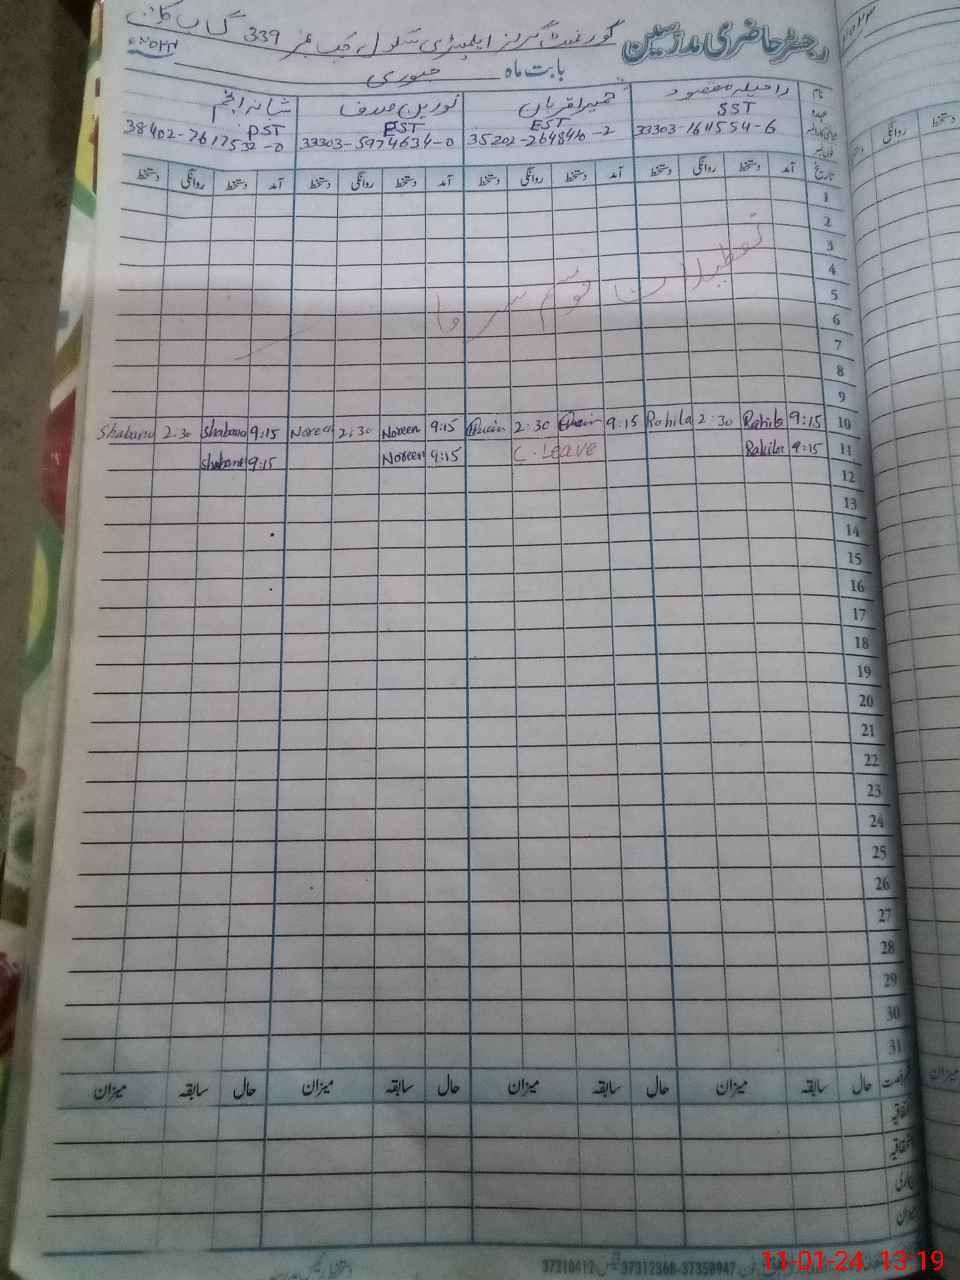 رجسٹر حاضری مدرسین گورنمنٹ گرلز ایلیمنٹری سکول چک نمبر 339 گ ب کلاں
بابت ماہ جنوری
نام راحیلہ مقصود حمیرا قربان نورین صدف شبانہ انجم
عہدہ SST EST EST PST
33303-1611554-6 35202-2648416-2 33303-5974634-0 38402-7617532-0
تاریخ آمد دستخط روانگی دستخط آمد دستخط روانگی دستخط آمد دستخط روانگی دستخط آمد دستخط روانگی دستخط
1
2
3
4
تعطیلات موسم سرما
5
6
7
8
9
Shabana 2:30 Shabana 9:15 Noreen 2:30 Noreen 9:15 2:30 9:15 Rahila 2:30 Rahila 9:15 10
Shabana 9:15 Noreen 9:15 C. Leave Rahila 9:15 11
12
13
14
15
16
17
18
19
20
21
22
23
24
25
26
27
28
29
30
31
حال سابقہ میزان حال سابقہ میزان حال سابقہ میزان حال سابقہ میزان
37310412 37312368-37358947
11-01-24 13:19